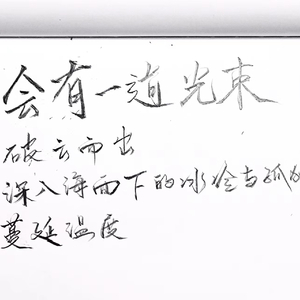 会有一道光束
破云而出
深入海面下的冰冷与孤
蔓延温度